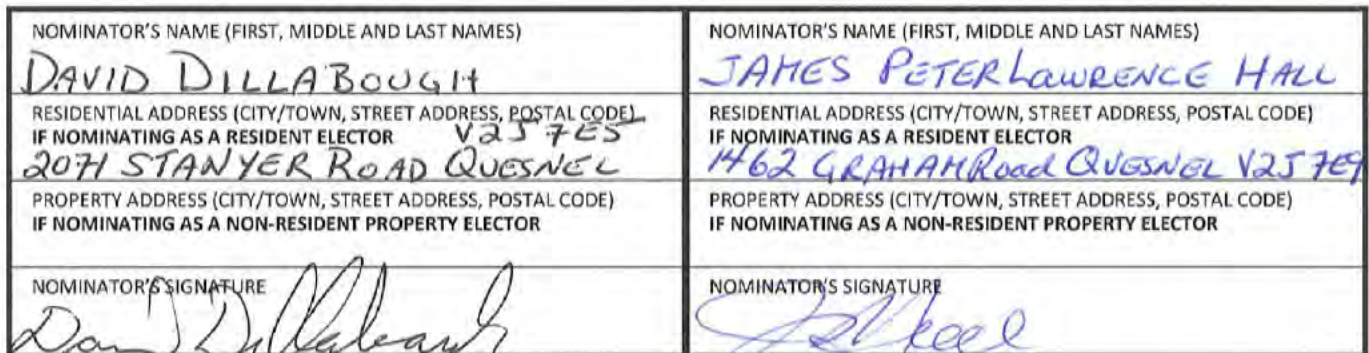 NOMINATOR'S NAME (FIRST, MIDDLE AND LAST NAMES)
DAVID DILLABOUGH
RESIDENTIAL ADDRESS (CITY/TOWN, STREET ADDRESS, POSTAL CODE)
IF NOMINATING AS A RESIDENT ELECTOR V2J 7E5
2071 STANYER ROAD QUESNEL
PROPERTY ADDRESS (CITY/TOWN, STREET ADDRESS, POSTAL CODE)
IF NOMINATING AS A NON-RESIDENT PROPERTY ELECTOR
NOMINATOR'S SIGNATURE
NOMINATOR'S NAME (FIRST, MIDDLE AND LAST NAMES)
JAMES PETER LAWRENCE HALL
RESIDENTIAL ADDRESS (CITY/TOWN, STREET ADDRESS, POSTAL CODE)
IF NOMINATING AS A RESIDENT ELECTOR
1462 GRAHAM Road QUESNEL V2J 7E9
PROPERTY ADDRESS (CITY/TOWN, STREET ADDRESS, POSTAL CODE)
IF NOMINATING AS A NON-RESIDENT PROPERTY ELECTOR
NOMINATOR'S SIGNATURE